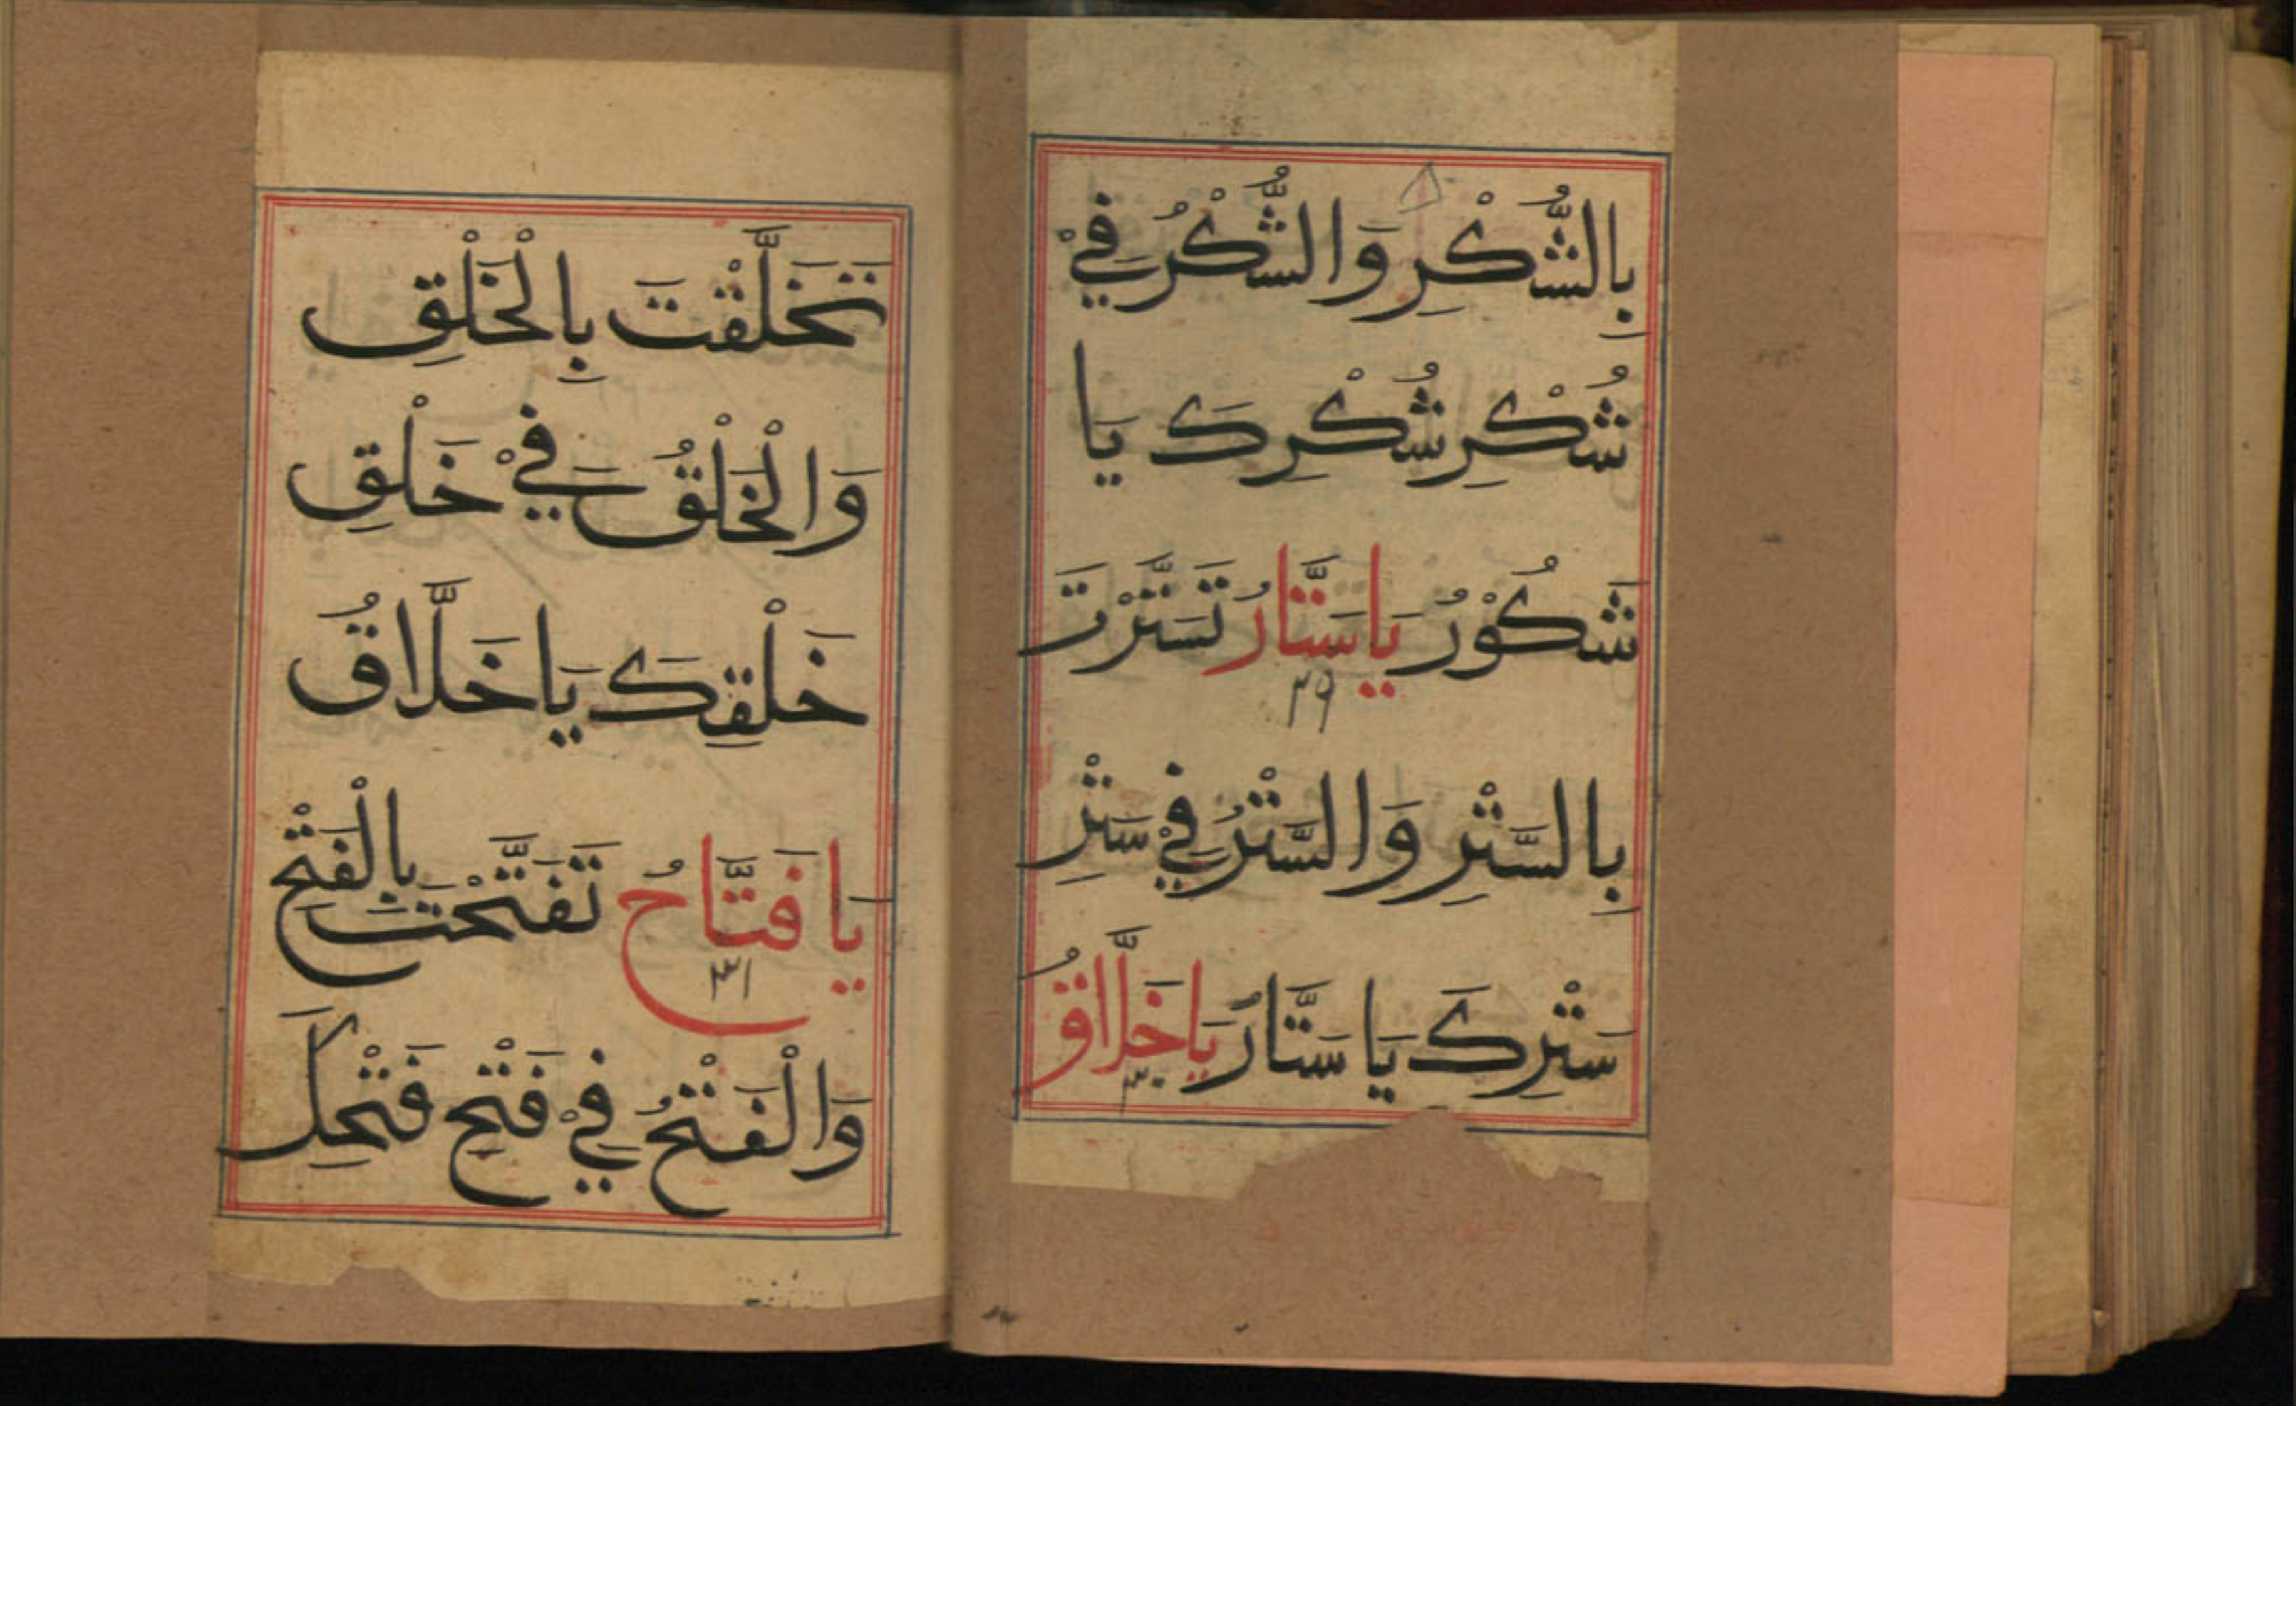 بِالشُّكْرِ وَالشُّكْرُ فِيْ
شُكْرِ شُكْرِكَ يَا
شَكُوْرُ يَا سَتَّارُ تَسَتَّرْتَ
٢٩
بِالسَّتْرِ وَالسَّتْرُ فِيْ سَتْرِ
سَتْرِكَ يَا سَتَّارُ يَا خَلَّاقُ
٣٠
تَخَلَّقْتَ بِالْخَلْقِ
وَالْخَلْقُ فِيْ خَلْقِ
خَلْقِكَ يَا خَلَّاقُ
يَا فَتَّاحُ تَفَتَّحْتَ بِالْفَتْحِ
٣١
وَالْفَتْحُ فِيْ فَتْحِ فَتْحِكَ